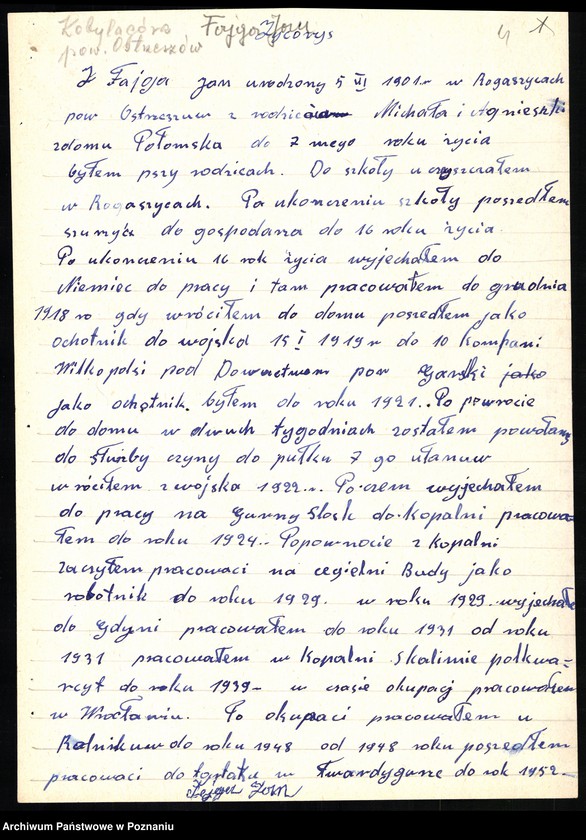 Kobylagóra Fajga Jan
pow. Ostrzeszów
Życiorys 4
Z Fajga Jan urodzony 5 VI 1901 r w Rogaszycach
pow Ostrzeszuw z rodzic Michała i Agnieszki
zdomu Połomska do 7 mego roku życia
byłem pszy rodzicach. Do szkoły uczęszczałem
w Rogaszycach. Pa ukonczeniu szkoły poszedłem
szurzyć do gospodarza do 16 roku życia.
Po ukonczeniu 16 rok życia wyjechałem do
Niemiec do pracy i tam pracowałem do grudnia
1918 ro gdy wróciłem do domu poszedłem jako
ochotnik do wojska 15 I 1919 r do 10 Kompani
Wilkopolski pod Dowuctwem pow Garski jako
jako ochotnik. byłem do roku 1921.. Po powrocie
do domu w dwuch tygodniach zostałem powołany
do służby czyny do pułku 7 go ułanuw
wróciłem z wojska 1922.r. Po.czem wyjechałem
do pracy na Gurny Śląsk do kopalni pracowa-
łem do roku 1924.. Popowrocie z kopalni
zaczyłem pracowaci na cegielni Budy jako
robotnik do roku 1929. w roku 1929. wyjechałe
do Gdyni pracowałem do roku 1931 od roku
1931 pracowałem w Kopalni Skalimie połkwa=
rcyt do roku 1939- w czasie okupacj pracowałem
w Wrocłaniu. Po okupaci pracowałem u
Rolnikuw do roku 1948 od 1948 roku poszedłem
pracowaci do tartaku w Twardygurze do rok 1952-
Fajga Jan
Archiwum Państwowe w Poznaniu